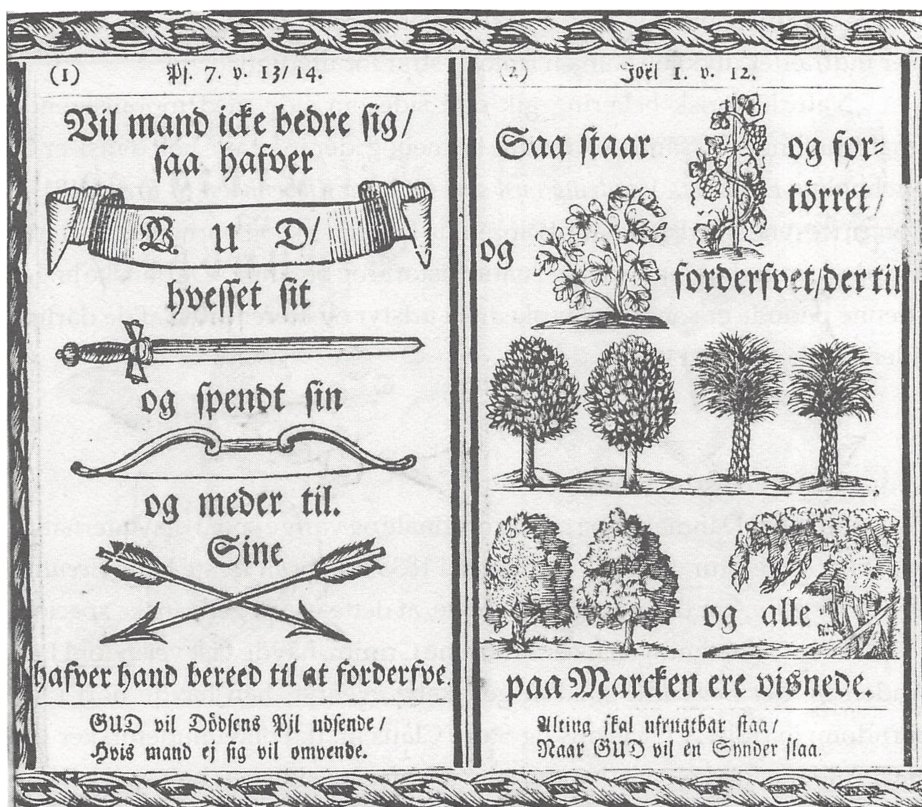 (1) Ps. 7. v. 13/14.
Vil mand icke bedre sig/
saa hafver
GUD
hvesset sit
og spendt sin
og meder til.
Sine
hafver hand bereed til at forderfve.
GUD vil Dödsens Pil udsende/
Hvis mand ej sig vil omvende.
(2) Joël 1. v. 12.
Saa staar og for-
törret/
og
forderfvet/der til
og alle
paa Marcken ere visnede.
Alting skal ufrugtbar staa/
Naar GUD vil en Synder slaa.